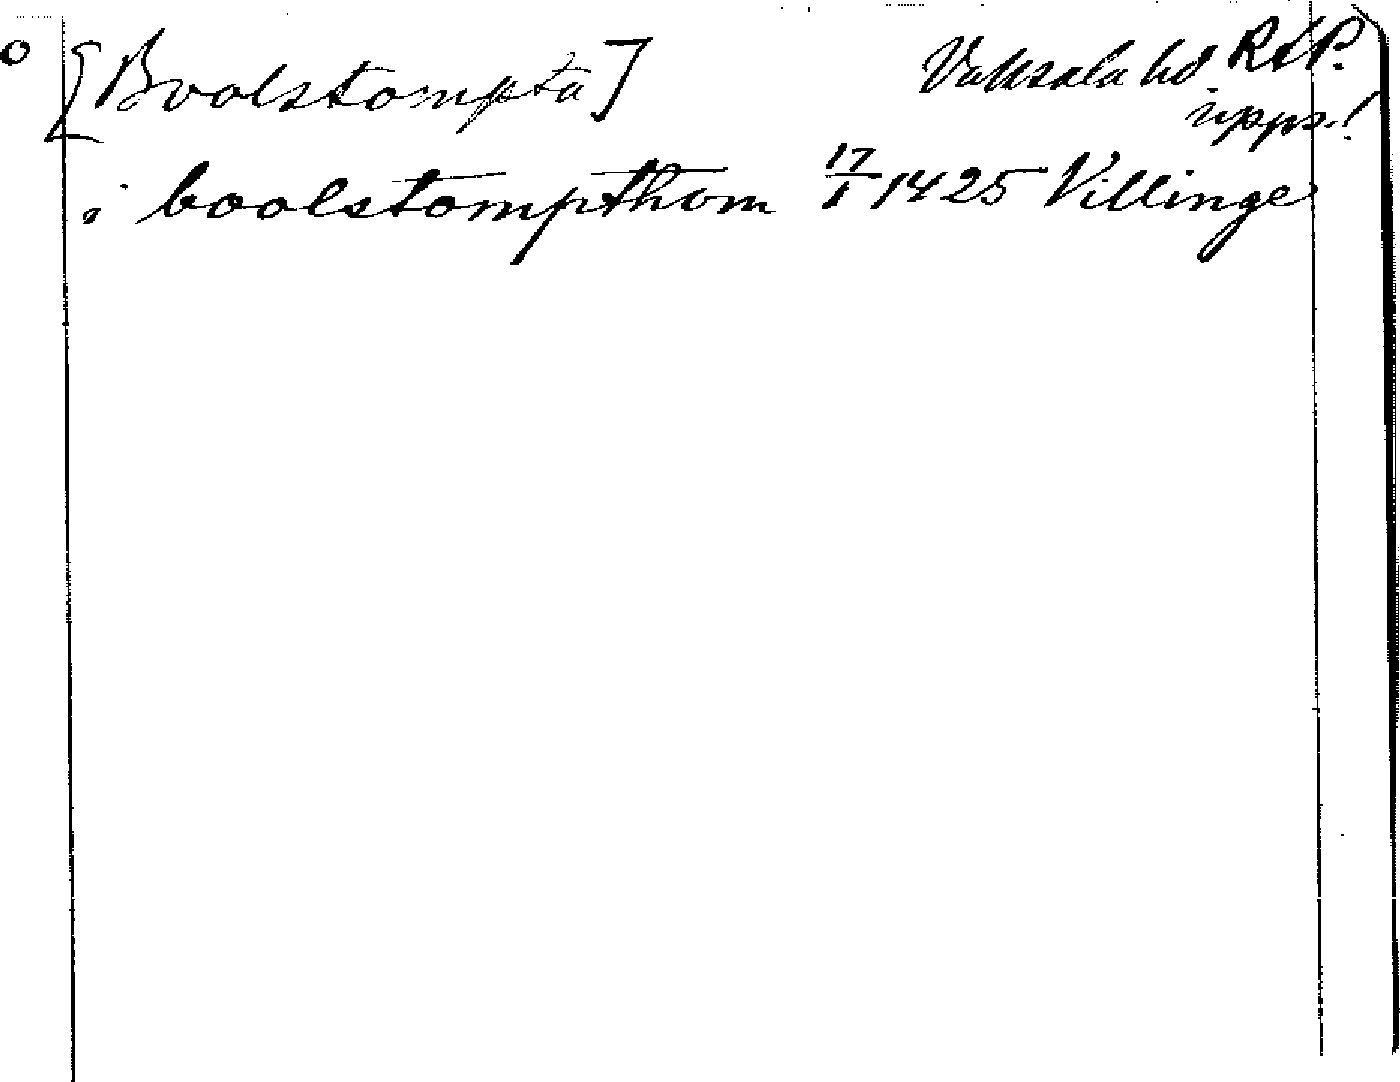 o [Boolstompta] Vaksala hd RAP.
upps.!
i boolstompthom 17/1 1425 Villinge